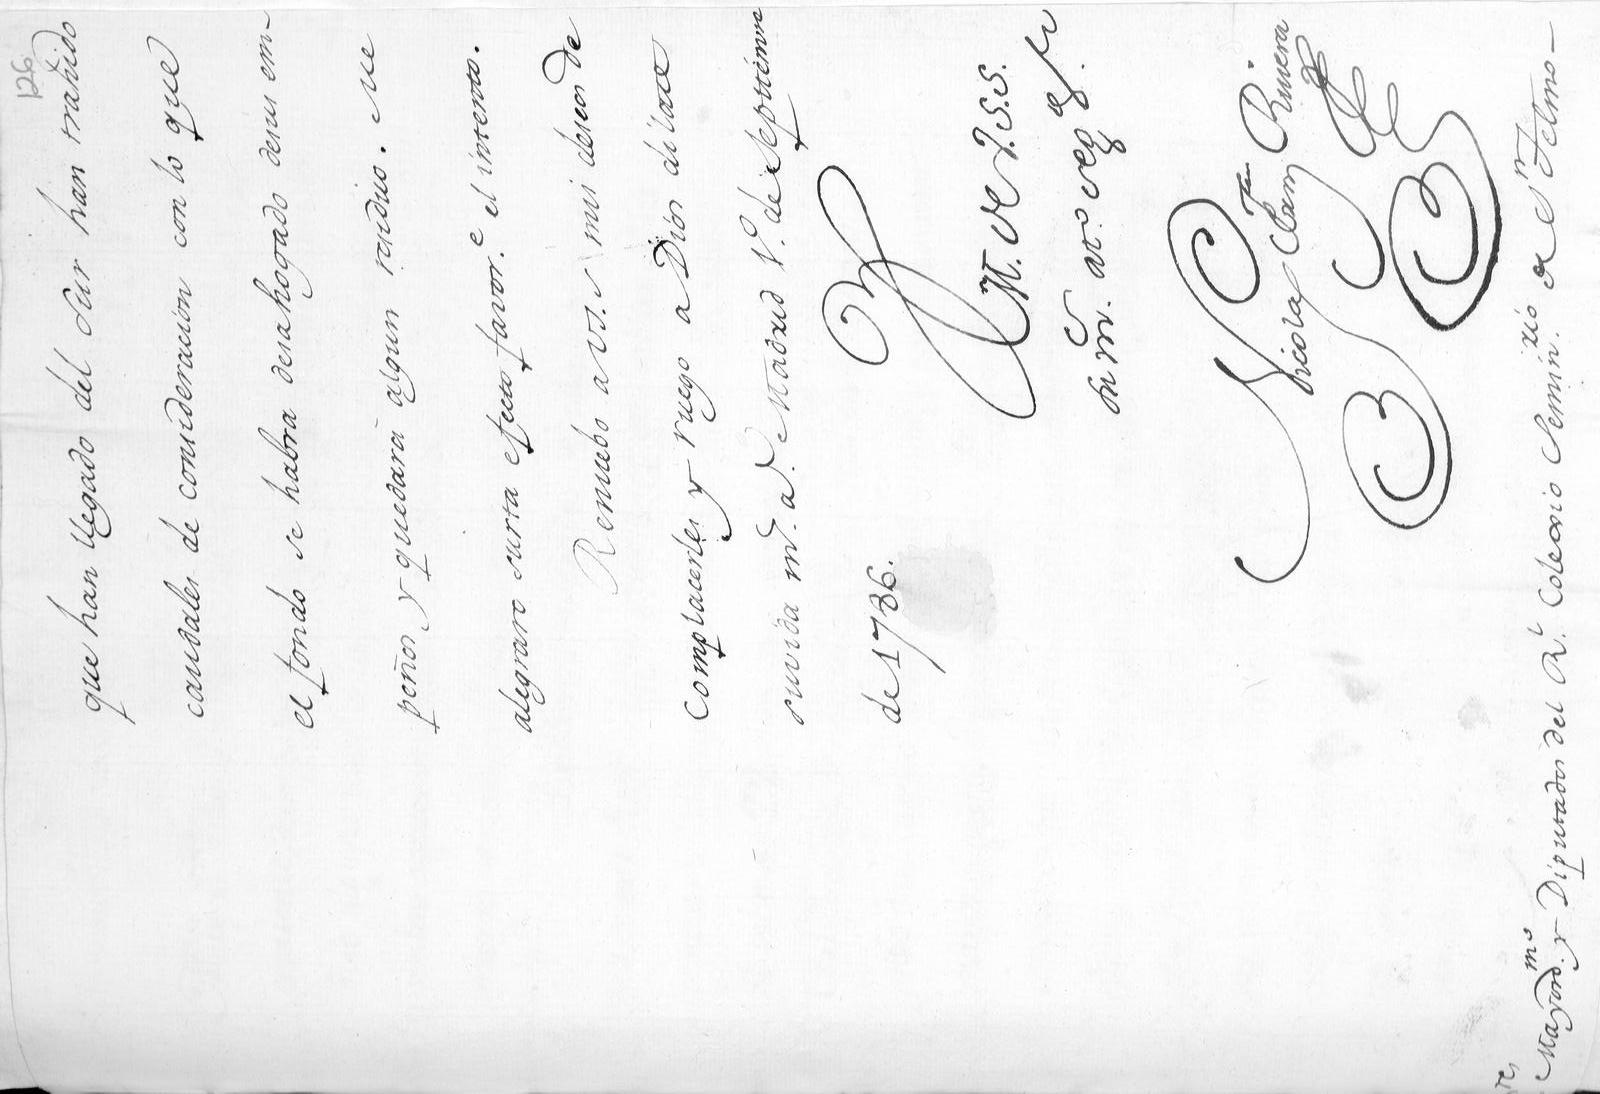 126
que han llegado del Sur han trahido
caudales de consideracion con lo que
el fondo se habra desahogado desus em-
peños, y quedara algun residuo. Me
alegraro surta efecto favor.e el intento.
Renuebo a vs. mi deseo de
Complacerles y ruego a Dios dilate
su vida m.s a.s Madrid 1.o de Septiembre
de 1786.
B. L. M. de V.S.S.
su m.r at.o seg.o
Nicolas Clam.te Rivera
res Mayord.mo y Diputados del R.l Colexio Semin.xio de S.n Telmo-